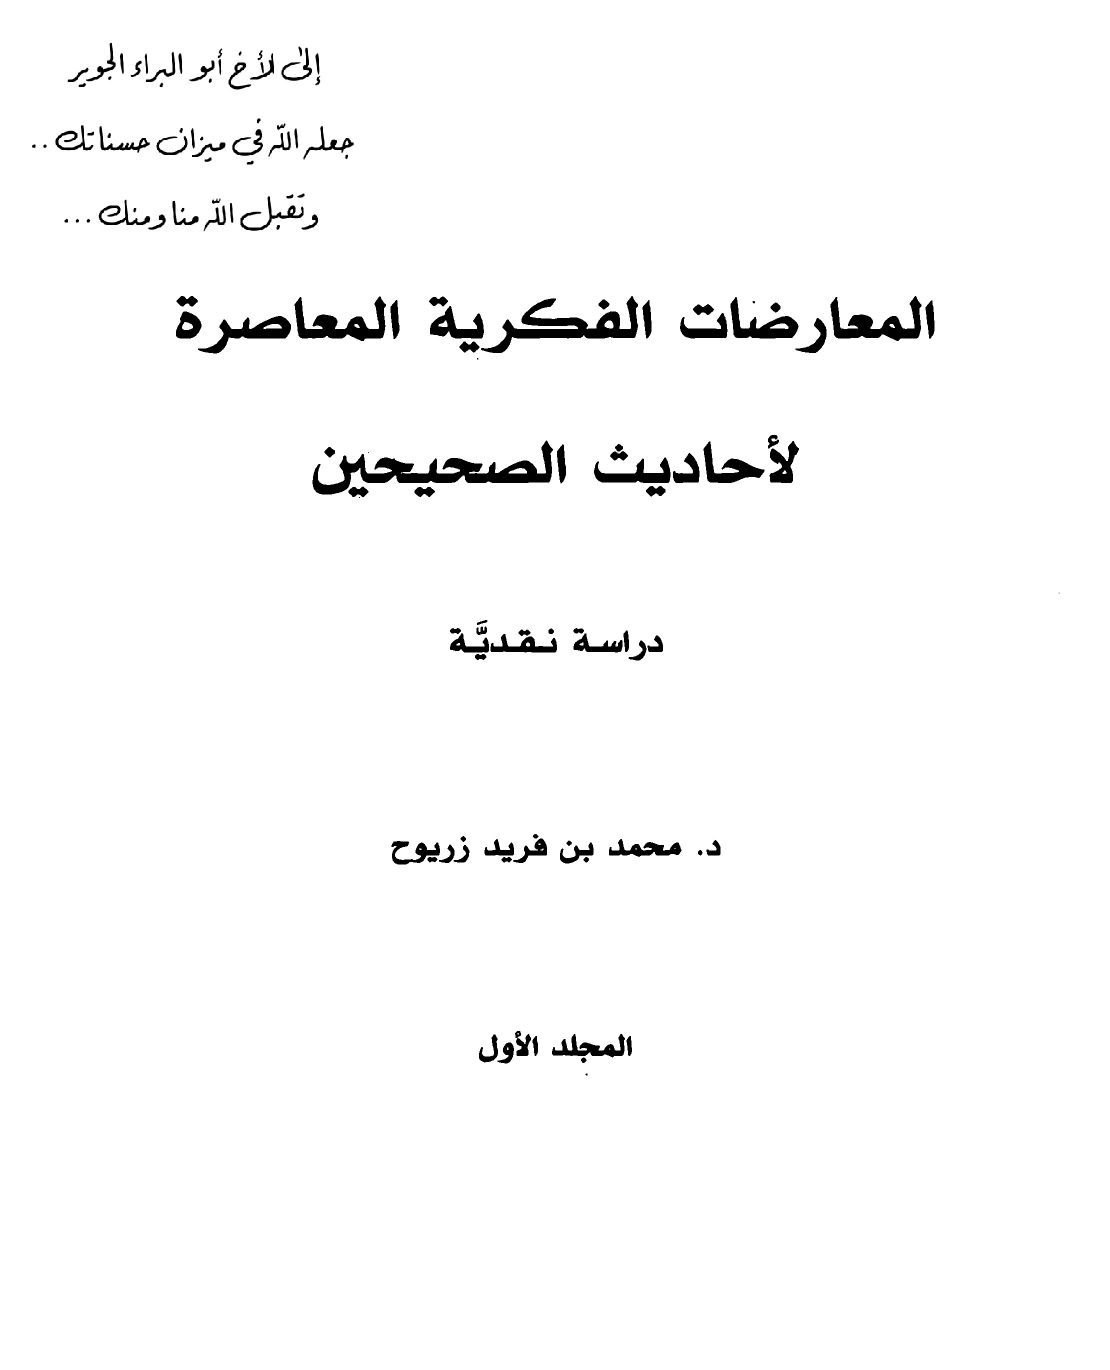 إلى لأخ أبو البراء الجوير
جعله الله في ميزان حسناتك ..
وتَقبل الله منا ومنك ...
المعارضات الفكرية المعاصرة
لأحاديث الصحيحين
دراسة نقديَّة
د. محمد بن فريد زريوح
المجلد الأول